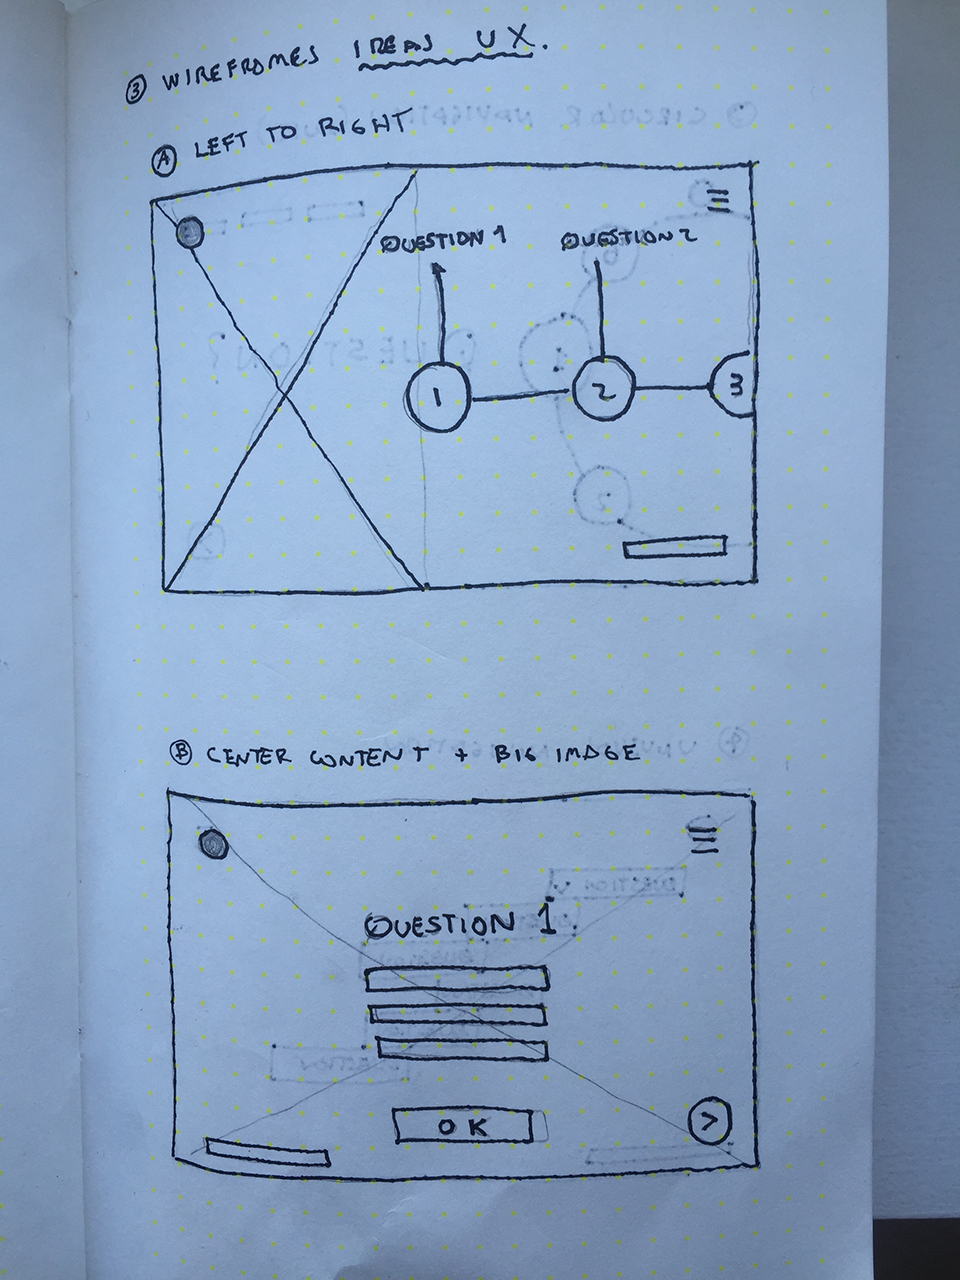 3 WIREFROMES IREAS UX.
A LEFT TO RIGHT
QUESTION 1 QUESTION 2
1 2 3
B CENTER CONTENT + BIG IMAGE
QUESTION 1.
OK
>